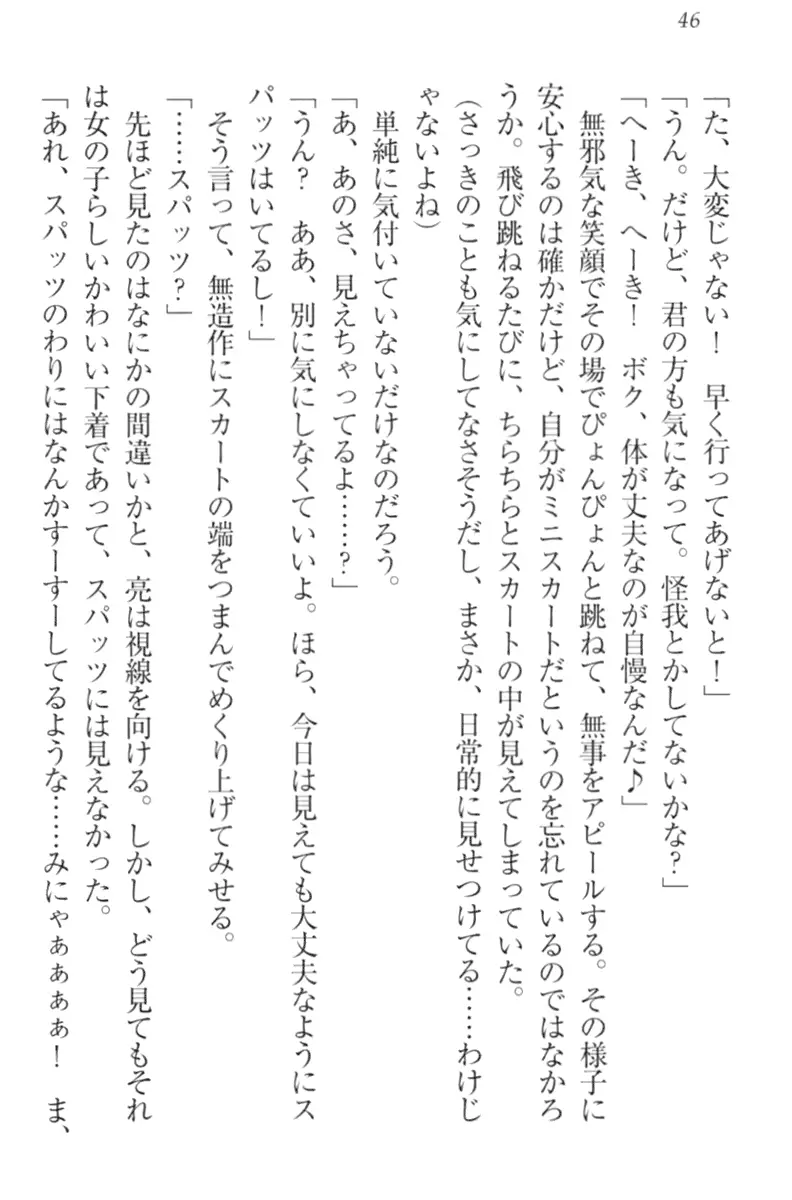 46
「た、大変じゃない！　早く行ってあげないと！」
「うん。だけど、君の方も気になって。怪我とかしてないかな？」
「へーき、へーき！　ボク、体が丈夫なのが自慢なんだ♪」
　無邪気な笑顔でその場でぴょんぴょんと跳ねて、無事をアピールする。その様子に
安心するのは確かだけど、自分がミニスカートだというのを忘れているのではなかろ
うか。飛び跳ねるたびに、ちらちらとスカートの中が見えてしまっていた。
（さっきのことも気にしてなさそうだし、まさか、日常的に見せつけてる……わけじ
ゃないよね）
　単純に気付いていないだけなのだろう。
「あ、あのさ、見えちゃってるよ……？」
「うん？　ああ、別に気にしなくていいよ。ほら、今日は見えても大丈夫なようにス
パッツはいてるし！」
　そう言って、無造作にスカートの端をつまんでめくり上げてみせる。
「……スパッツ？」
　先ほど見たのはなにかの間違いかと、亮は視線を向ける。しかし、どう見てもそれ
は女の子らしいかわいい下着であって、スパッツには見えなかった。
「あれ、スパッツのわりにはなんかすーすーしてるような……みにゃぁぁぁぁ！　ま、